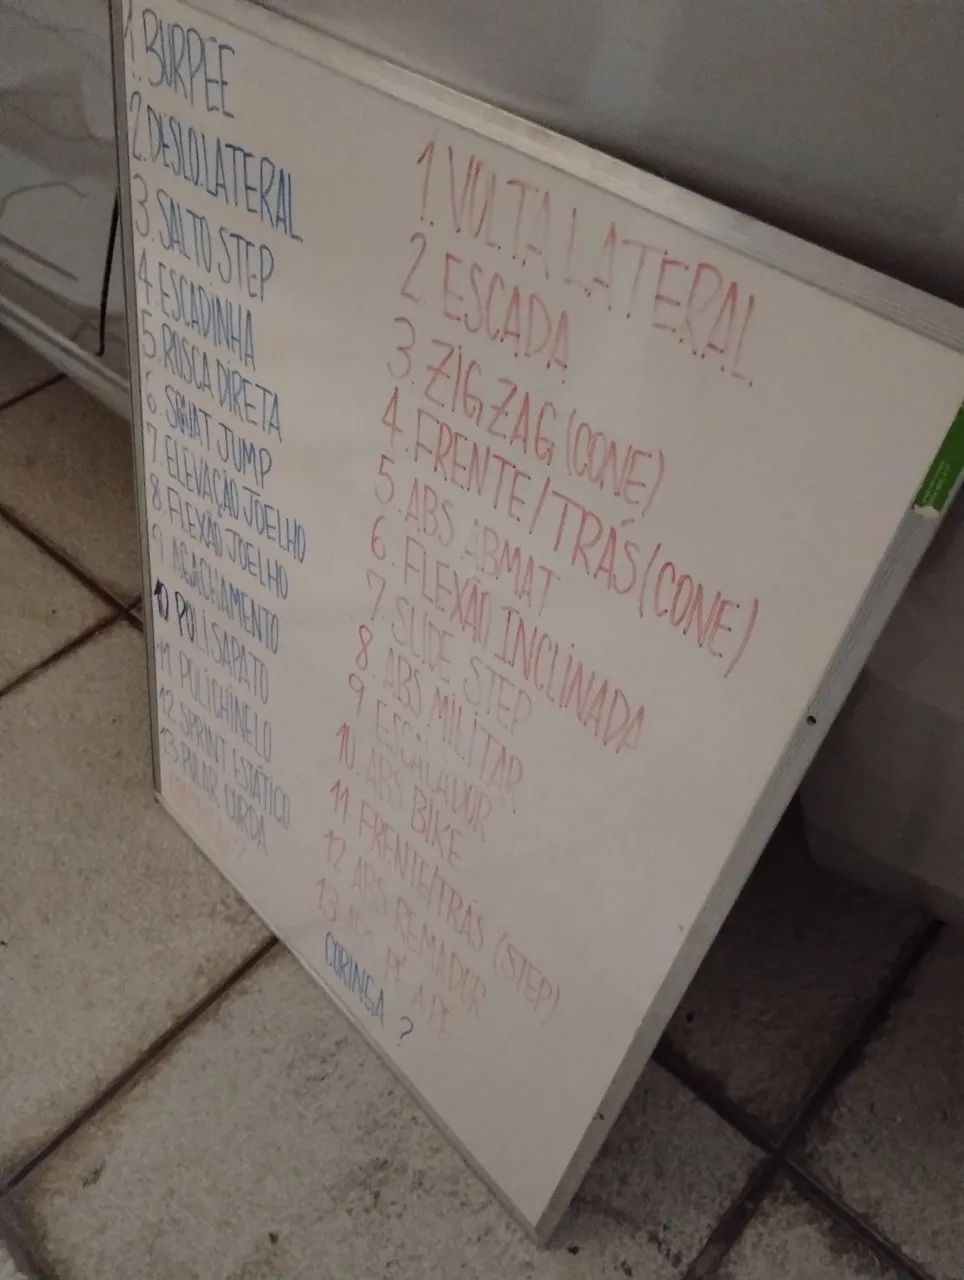 1. BURPEE
2. DESLO. LATERAL
3. SALTO STEP
4. ESCADINHA
5. ROSCA DIRETA
6. SQUAT JUMP
7. ELEVAÇÃO JOELHO
8. FLEXÃO JOELHO
9. AGACHAMENTO
10. POLISAPATO
11. POLICHINELO
12. SPRINT ESTÁTICO
13. PULAR CORDA
1. VOLTA LATERAL
2. ESCADA
3. ZIGZAG (CONE)
4. FRENTE/TRÁS (CONE)
5. ABS ABMAT
6. FLEXÃO INCLINADA
7. SLIDE STEP
8. ABS MILITAR
9. ESCALADOR
10. ABS BIKE
11. FRENTE/TRÁS (STEP)
12. ABS REMADOR
13.
PÉ A PÉ
CORINGA ?